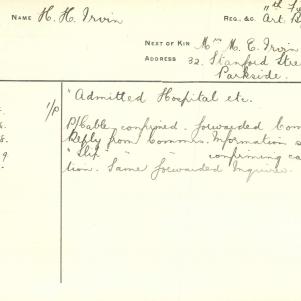 NAME H. H. Irvin REG. &C. 11th F
Art B
NEXT OF KIN Mrs M. E. Irvin
ADDRESS 32, Stanford Stre
Parkside.
1/P "Admitted Hospital etc.
P/Cable confirmed. forwarded Com
Reply from Commn. Information s
9 "Slip" " " confirming ca
tion. Same forwarded Inquirer.